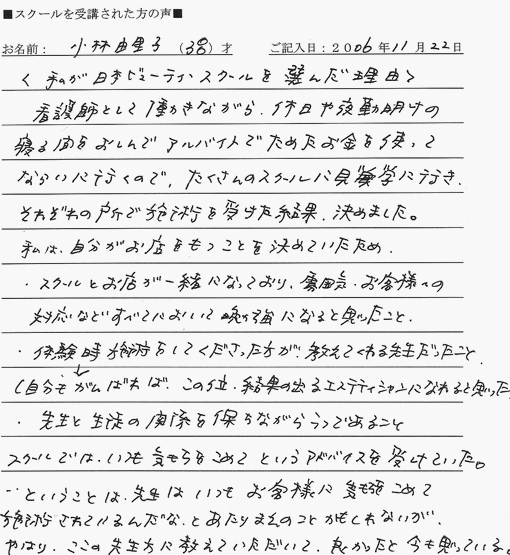 ■スクールを受講された方の声■
お名前: 小林由里子 (38)才 ご記入日:2006年11月22日
<私が日本ビューティスクールを選んだ理由>
看護師として働きながら、休日や夜勤明けの
寝る間をおしんでアルバイトでためたお金を使って
ならいに行くので、たくさんのスクールに見学に行き、
それぞれの所で施術を受けた結果、決めました。
私は、自分がお店をもつことを決めていたため、
・スクールとお店が一緒になっており、雰囲気・お客様への
対応などすべてにおいて勉強になると思ったこと、
・体験時施術をしてくださった方が、教えてくれる先生だったこと、
(自分もがんばれば、この位、結果の出るエステティシャンになれると思った
・先生と生徒の関係を保ちながら であること
スクールでは、いつも気もちをこめてというアドバイスを受けていた。
ということは、先生はいつもお客様に気もちをこめて
施術されているんだな、とあたりまえのことかもしれないが、
やはり、ここの先生方に教えていただいて、良かったと今も思っている。